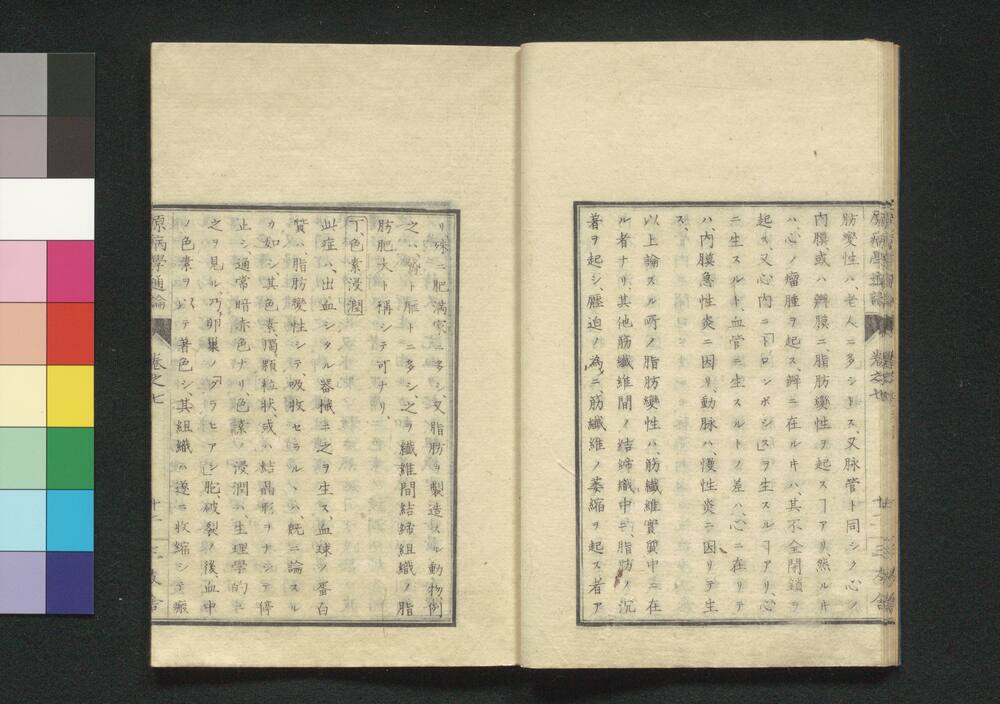 肪變性ハ、老人ニ多シトス、又脉管ト同シク心ノ
内膜或ハ瓣膜ニ脂肪變性ヲ起スヿアリ、然ルキ
ハ、心ノ瘤腫ヲ起ス、瓣ニ在ルキハ、其不全閉鎖ヲ
起ス、又心内ニ「トロンボシス」ヲ生スルヿアリ、心
ニ生スルト、血管ニ生スルトノ差ハ、心ニ在リテ
ハ、内膜急性炎ニ因リ動脉ハ、慢性炎ニ因リテ生
ス、
以上論スル所ノ脂肪變性ハ、筋纖維實質中ニ在
ル者ナリ、其他筋纖維間ノ結締織中ニ、脂肪ノ沉
著ヲ起シ、壓迫ノ為ニ、筋纖維ノ萎縮ヲ起ス者ア
リ殊ニ肥満家ニ多シ、又脂肪ヲ製造スル動物、例
之ハ豚ト雁トニ多シ、之ヲ纖維間結締組織ノ脂
肪肥大ト稱シテ可ナリ、
丁、色素浸潤
此症ハ、出血シタル器械ニ之ヲ生ス、血球ノ蛋白
質ハ脂肪變性シテ吸收セラルヽハ、既ニ論スル
カ如シ、其色素、獨顆粒狀、或ハ結晶形ヲナシテ停
止シ、通常暗赤色ナリ、色素ノ浸潤ハ、生理學的ニ
之ヲ見ル、乃卵巢ノ「グラヒアン」胞破裂ノ後、血中
ノ色素ヲ以テ著色シ、其組織ハ遂ニ收縮シテ瘢
原病學通論 卷之七 十二 三友舎